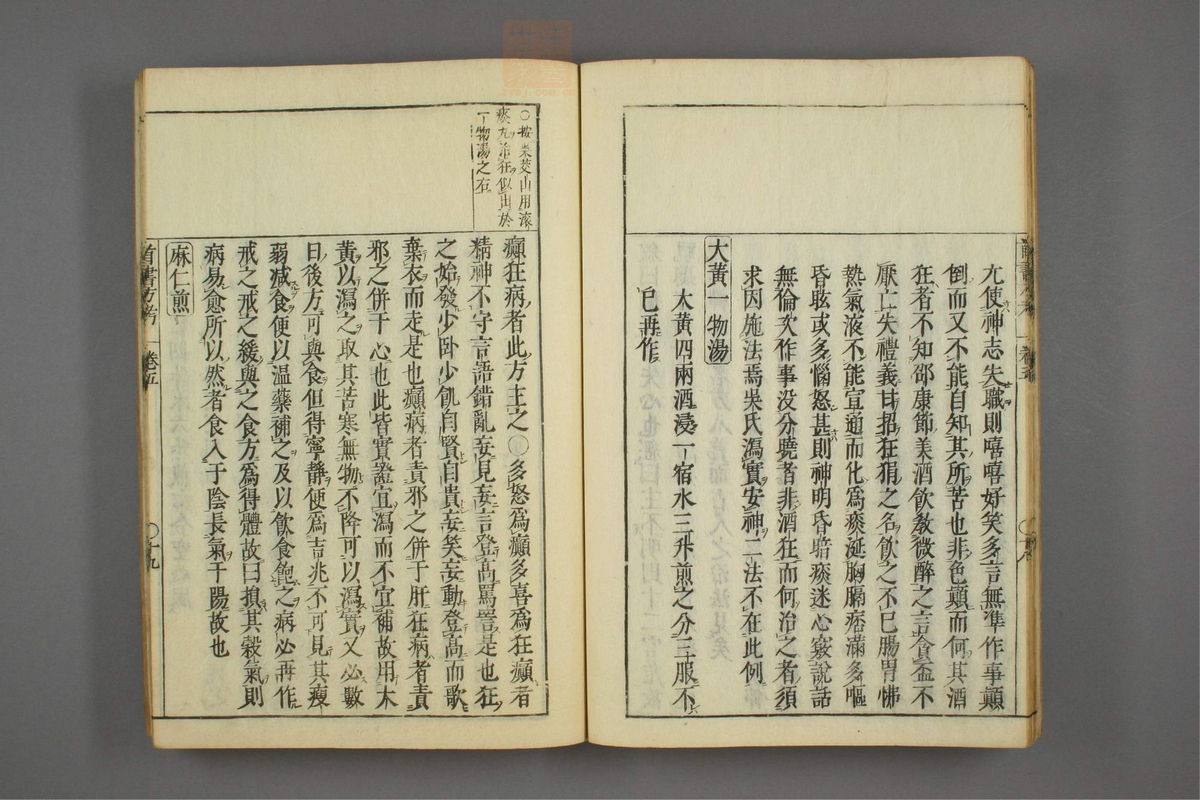 尤使神志失職則嘻嘻好笑多言無準作事顛
倒而又不能自知其所苦也非色顛而何其酒
狂者不知邵康節美酒飲教微醉之言貪盃不
厭亡失禮義甘招狂狷之名飲之不已腸胃怫
熱氣液不能宣通而化為痰涎胸膈痞滿多嘔
昏眩或多惱怒甚則神明昏暗痰迷心竅說話
無倫次作事没分曉者非酒狂而何治之者須
求因施法焉吳氏瀉實安神二法不在此例
大黃一物湯
大黃四兩酒浸一宿水三升煎之分三服不
已再作
○按吳茭山用滾
痰丸治狂似出於
一物湯之右
癲狂病者此方主之○多怒爲癲多喜爲狂癲者
精神不守言語錯亂妄見妄言登高罵詈是也狂
之始發少卧少飢自賢自貴妄笑妄動登高而歌
棄衣而走是也癲病者責邪之併于肝狂病者責
邪之併于心也此皆實證宜瀉而不宜補故用大
黃以瀉之取其苦寒無物不降可以瀉實又必數
日後方可與食但得寧靜便爲吉兆不可見其瘦
弱減食便以温藥補之及以飲食飽之病必再作
戒之戒之緩與之食方爲得體故曰損其穀氣則
病易愈所以然者食入于陰長氣于陽故也
麻仁煎
首書方考
卷五
十九